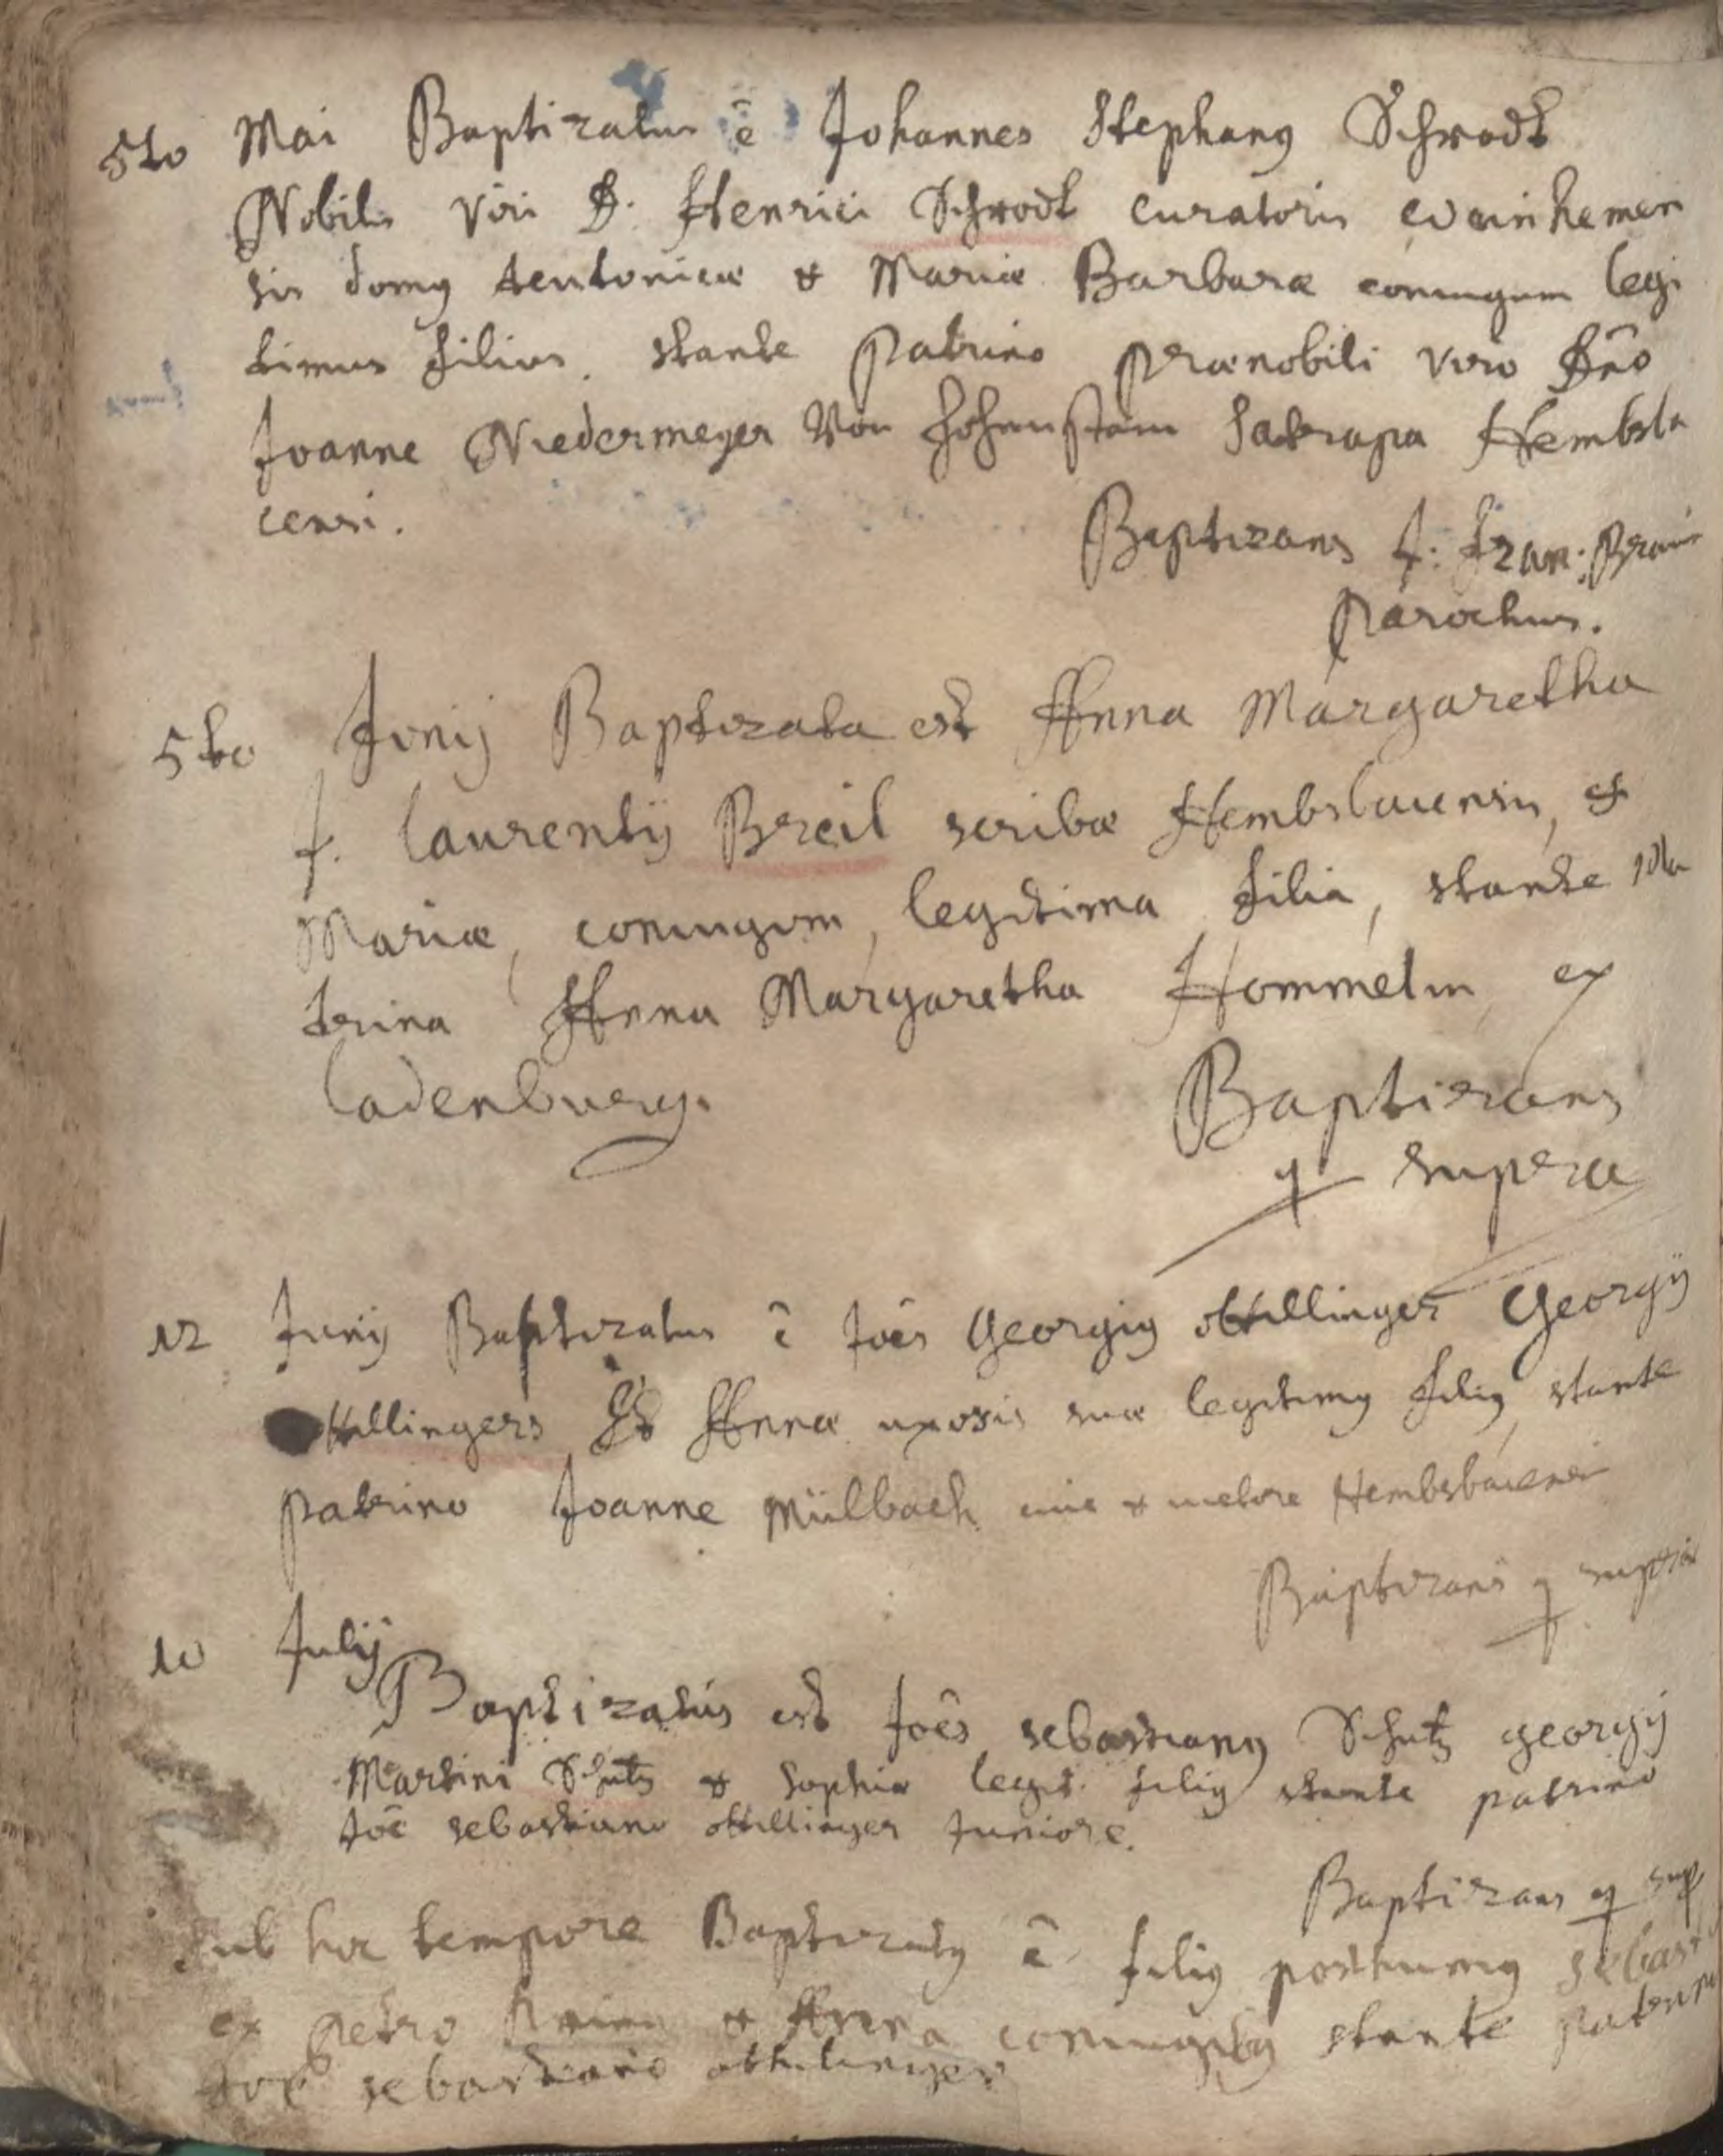 5to Mai Baptizatus ē Johannes Stephanus Schrodt
Nobilis viri D. Henrici Schrodt curatoris weinhemen
sis domus teutonicæ & Mariæ Barbaræ coniugum legi
timus filius. stante Patrino Prænobili viro Dño
Joanne Niedermeyer Von Satrapa Hembsba
censi.
Baptizans f: Fran:
Parochus.
5to Junij Baptizata est Anna Margaretha
f. Laurentij Breil scribæ Hembsbacensis, &
Mariæ, coniugum, legitima filia, stante Ma
trina Anna Margaretha Hommelin ex
Ladenburg.
Baptizans
q supra
12 Junij Baptizatus ē Joēs Georgius ottillinger Georgij
ottillingers Et Annæ uxoris suæ legitimus filius, stante
patrino Joanne Mülbach cive & Hembsbacensi
Baptizans q supra
10 Julij
Baptizatus est Joēs sebastianus Schutz georgij
Martini Schutz & Sophiæ legit. filius stante patrino
Joē sebastiano ottillinger Juniore.
Baptizans q sup
sub hoc tempore Baptizatus ē filius posthumus sebast
ex petro & Anna coniugibus stante patrino
Joē sebastiano ottilinger